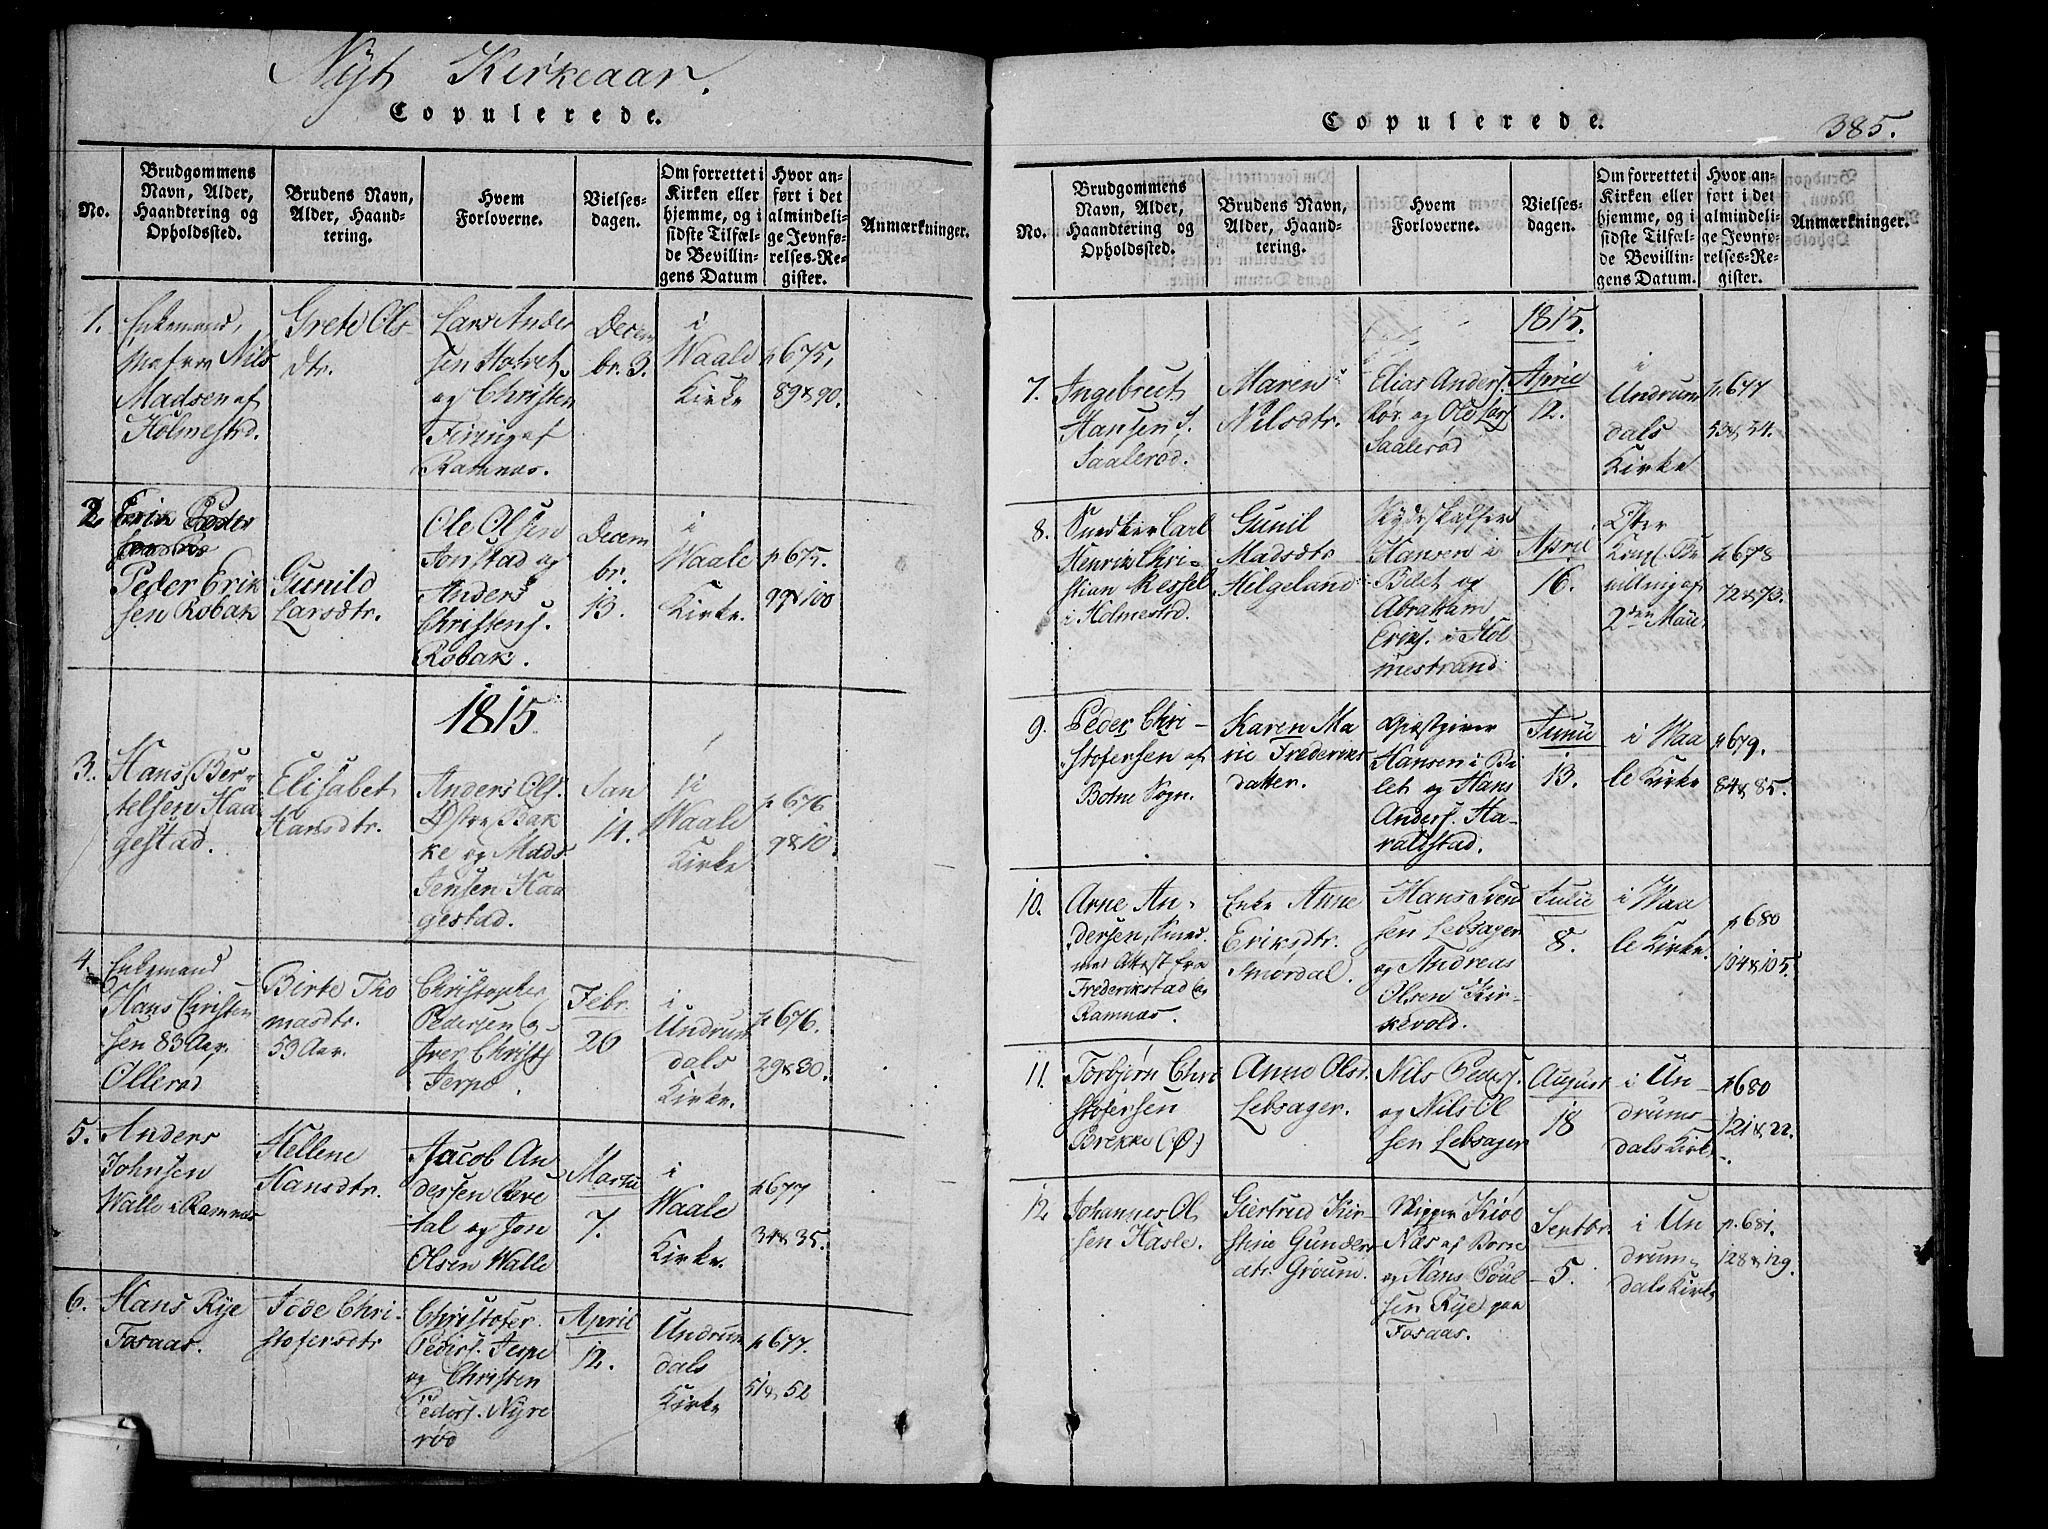 Nyt Kirkeaar.
Copulerede.
No.
Brudgommens
Navn, Alder,
Haandtering og
Opholdssted.
Brudens Navn,
Alder, Haand-
tering.
Hvem
Forloverne.
Vielses-
dagen.
Om forrettet i
Kirken eller
hjemme, og i
sidste Tilfæl-
de Bevillin-
gens Datum
Hvor an-
ført i det
almindeli-
ge Jevnfø-
relses-Re-
gister.
Anmærkninger.
1.
Enkemand,
Nils
Madsen af
Holmestrd.
Grete Ols
dtr.
Lars Ander
sen
og Christen
Firing af
Ramnæs.
Decem
br. 3.
i
Waale
Kirke
p 675,
89 & 90.
2.
Peder Erik
sen Robak
Gunild
Larsdtr.
Ole Olsen
Jonstad og
Anders
Christens.
Robak.
Decem
br.
13.
i
Waale
Kirke.
p 675.
99 & 100
1815
3.
Hans Ber-
telsen Haa
gestad.
Elisabet
Hansdtr.
Anders Ols.
Østre Bak
ke og Mads
Jensen Haa
gestad.
Jan
14.
i
Waale
Kirke
p 676
9 & 10.
4.
Enkemand
Hans Christen
sen 83 Aar.
Ollerød
Birte Tho
masdtr.
53 Aar.
Christopher
Pedersen og
Iver Christs
Jerpe.
Febr.
20
i
Undrum
dals
Kirke.
p 676.
29 & 30.
5.
Anders
Johnsen
Walle i Ramnæs
Hellene
Hansdtr.
Jacob An
dersen Reve
tal og Jon
Olsen Walle
Martii
7.
i
Waale
Kirke.
p 677
34 & 35.
6.
Hans Rye
Fosaas.
Tode Chri-
stofersdtr
Christofer
Peders. Jerpe
og Christen
Peders. Nyre
rød
April
12.
Undrum
dals
Kirke
p 677.
51 & 52
Copulerede.
385.
No.
Brudgommens
Navn, Alder,
Haandtering og
Opholdssted.
Brudens Navn,
Alder, Haand-
tering.
Hvem
Forloverne.
Vielses-
dagen.
Om forrettet i
Kirken eller
hjemme, og i
sidste Tilfæl-
de Bevillin-
gens Datum.
Hvor an-
ført i det
almindeli-
ge Jevnfø-
relses-Re-
gister.
Anmærkninger.
1815.
7.
Ingebreet
Hansen S.
Saalerød.
Maren
Nilsdtr.
Elias Anders.
Rør og Ole Lars
Saalerød
April
12.
i
Undrum
dals
Kirke
p. 677
53 & 54.
8.
Snedker Carl
Henrik Chri-
stian Wessel
i Holmestrd.
Gunil
Madsdtr
Helgeland
Skydeskaffer
Hansen i
Bilet og
Abraham
Eriks. i Hol
mestrand
April
16.
Efter
Kongl. Be
villing af
2den Maii
p 678
72 & 73.
9.
Peder Chri-
stofersen af
Botne Sogn.
Karen Ma
rie Frederiks
datter.
Giæstgiver
Hansen i Bi
let og Hans
Anders. Ha-
raldstad.
Junii
13.
i Waa
le Kirke
p 679.
84 & 85.
10.
Arne An-
dersen, Smed
med Attest fra
Frederikstad og
Ramnæs.
Enke Anne
Eriksdtr.
Smørdal.
Hans Iven
sen Lebsager
og Andreas
Olsen Kir-
kevold.
Julii
8.
i Waa
le Kirke.
p 680
104 & 105.
11.
Torbjørn Chri
stofersen
Brekke (Ø)
Anne Olsr.
Lebsager.
Nils Peders.
og Nils Ol
sen Lebsager
August
18
i Un-
drums-
dals Kirke
p 680
121 & 22.
12
Johannes Ol
sen Hasle.
Giertrud Kir-
stine Gunders
dtr. Groum.
Skipper Kiøl
Næs af Borre
og Hans Poul-
sen Rye paa
Fosaas.
Septbr.
5.
i Un
drum-
dals Kirke
p. 681.
128 & 129.